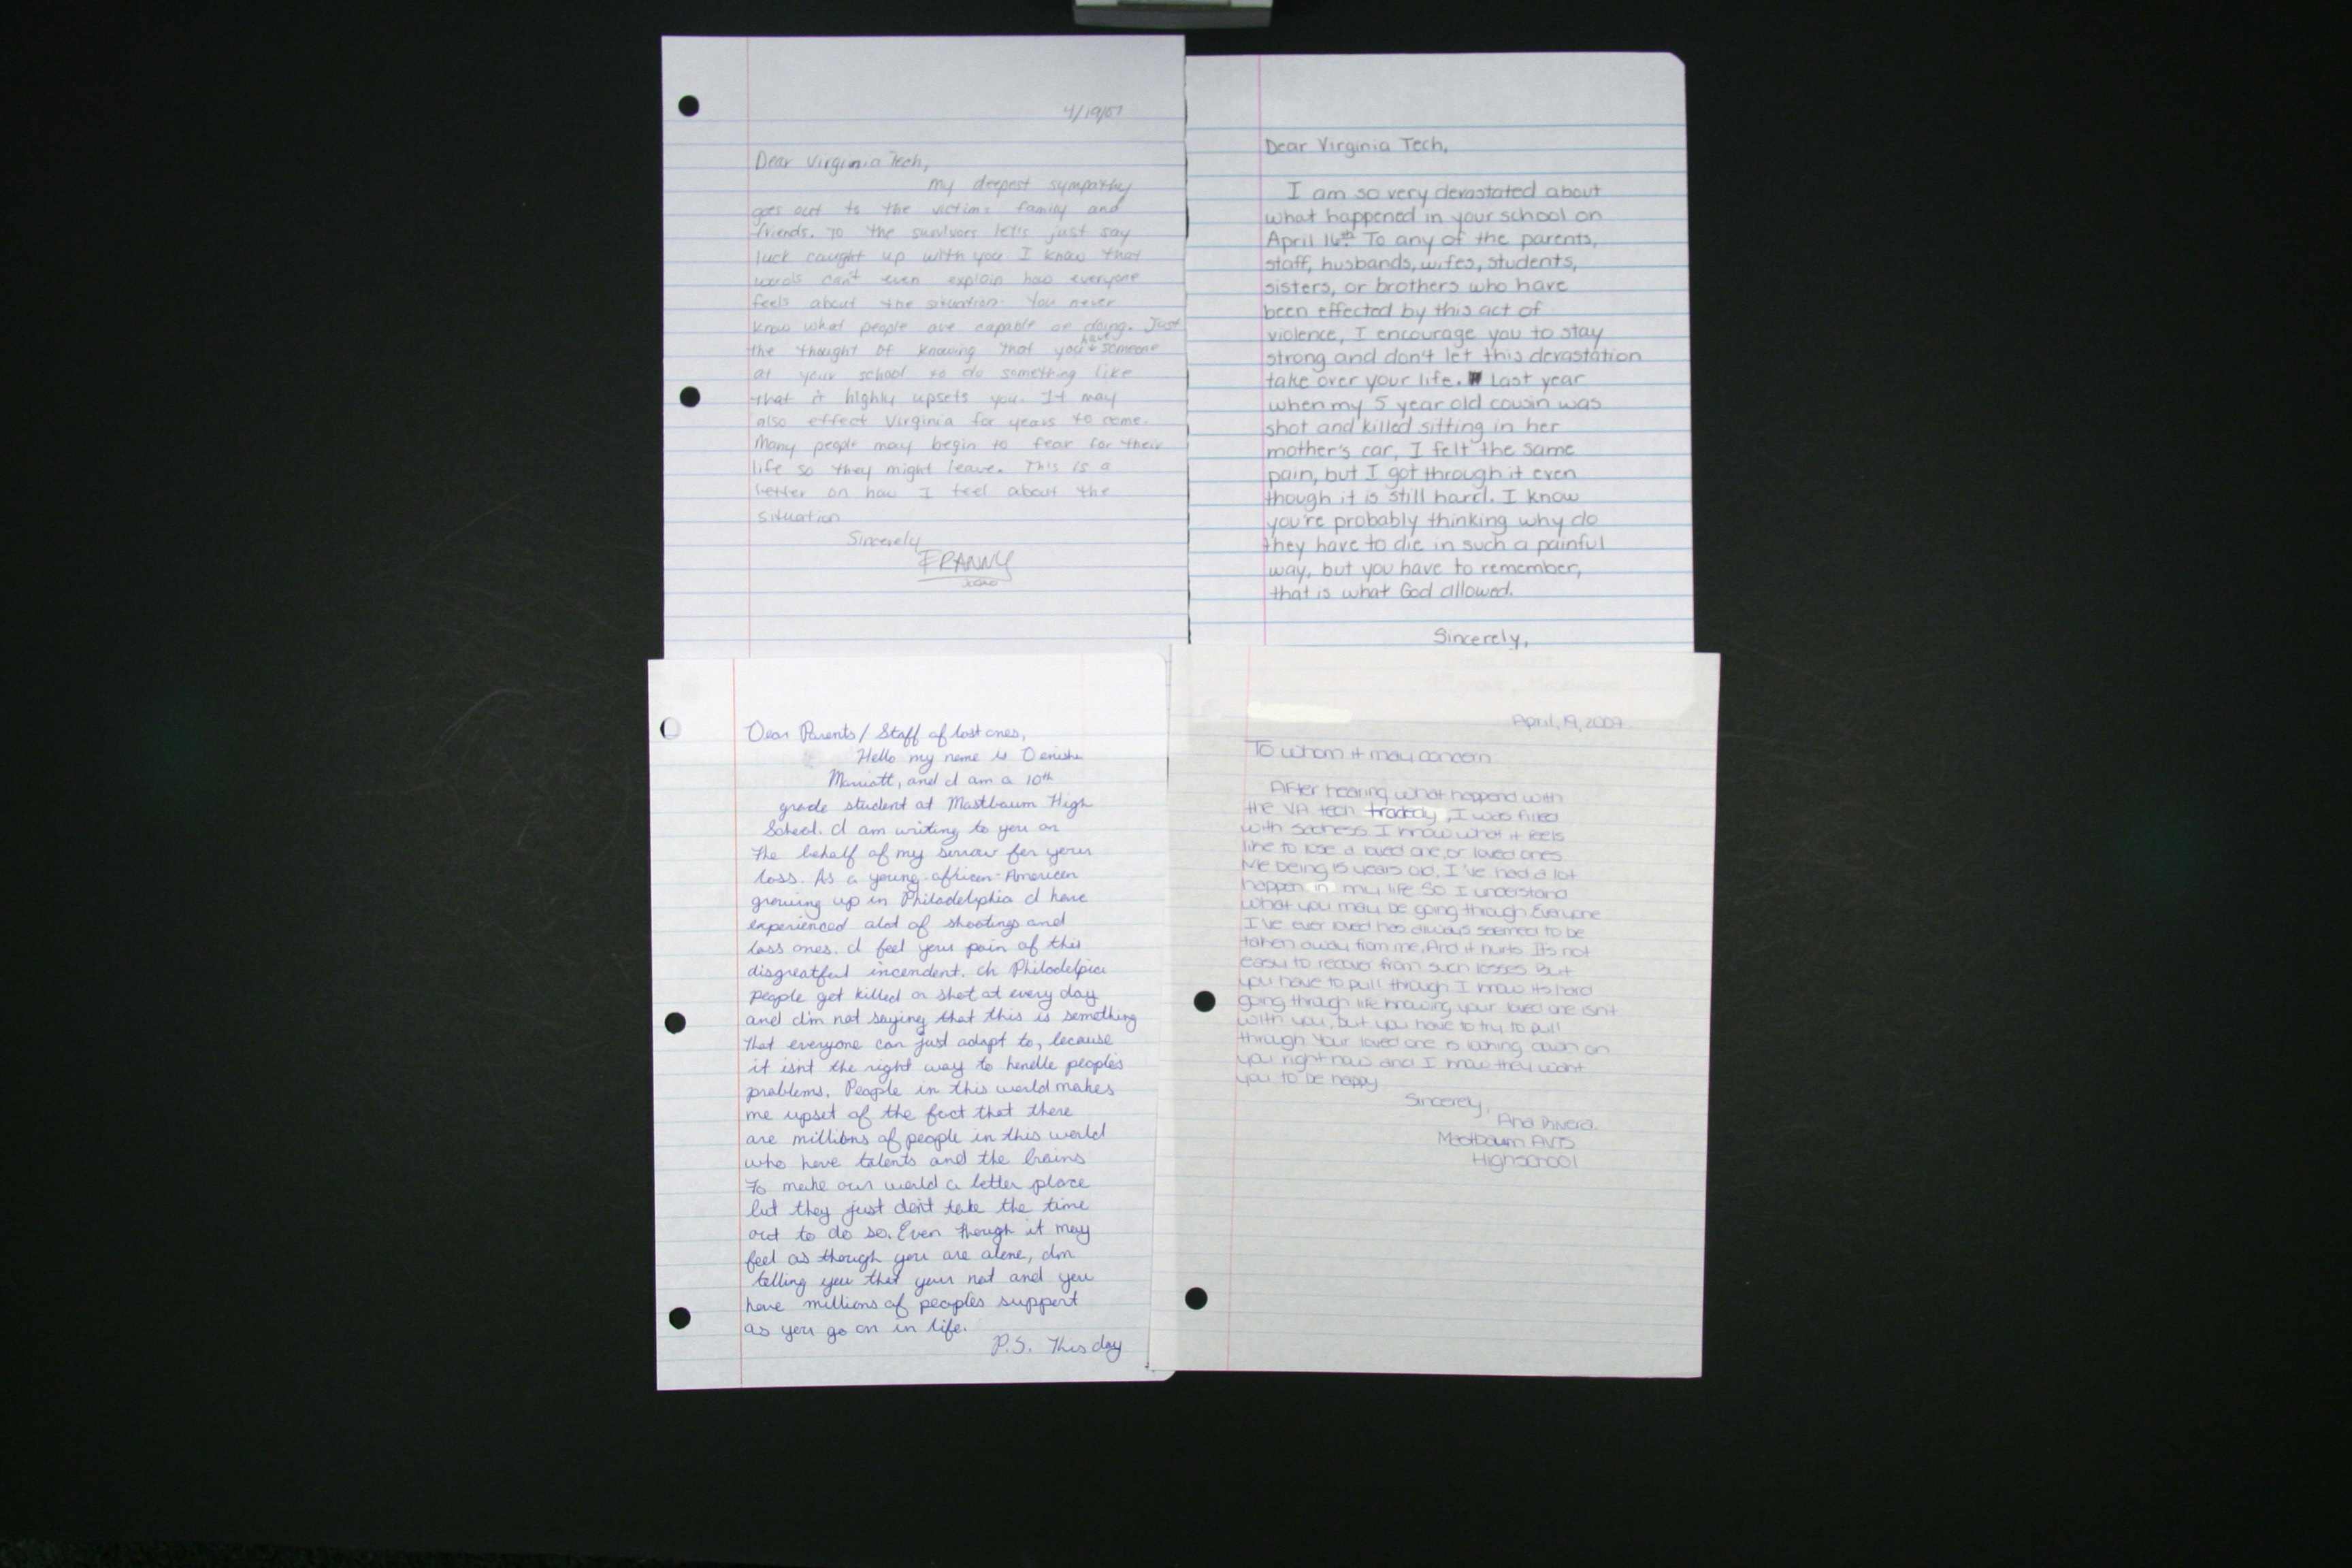 4/19/07
Dear Virginia Tech,
My deepest sympathy
goes out to the victims family and
friends. To the survivors let's just say
luck caught up with you I know that
words can't even explain how everyone
feels about the situation. You never
know what people are capable of doing. Just
the thought of knowing that you have someone
at your school to do something like
that it highly upsets you. It may
also effect Virginia for years to come.
Many people may begin to fear for their
life so they might leave. This is a
letter on how I feel about the
situation
Sincerely
FRANNY
Dear Virginia Tech,
I am so very devastated about
what happened in your school on
April 16th To any of the parents,
staff, husbands, wifes, students,
sisters, or brothers who have
been effected by this act of
violence, I encourage you to stay
strong and don't let this devastation
take over your life. Last year
when my 5 year old cousin was
shot and killed sitting in her
mother's car, I felt the same
pain, but I got through it even
though it is still hard. I know
you're probably thinking why do
they have to die in such a painful
way, but you have to remember,
that is what God allowed.
Sincerely,
Dear Parents/ Staff of lost ones,
Hello my name is Denisha
Marriott, and I am a 10th
grade student at Mastbaum High
School. I am writing to you on
the behalf of my sorrow for your
loss. As a young african-American
growing up in Philadeliphia I have
experienced alot of shootings and
loss ones. I feel your pain of this
disgreatful incendent. In Philadelpia
people get killed or shot at every day
and I'm not saying that this is something
that everyone can just adapt to, because
it isnt the right way to handle people's
problems. People in this world makes
me upset of the fact that there
are millions of people in this world
who have talents and the brains
to make our world a better place
but they just don't take the time
out to do so. Even though it may
feel as though you are alone, I'm
telling you that your not and you
have millions of peoples support
as you go on in life.
P.S. This day
April, 19, 2007
To whom it may concern
After hearing what happend with
the VA tech tradedy, I was filled
with sadness I know what it feels
like to lose a loved one, or loved ones
Me being 15 years old, I've had a lot
happen in my life So I understand
what you may be going through Everyone
I've ever loved has always seemed to be
taken away from me, And it hurts Its not
easy to recover from such losses But
you have to pull through I know its hard
going through life knowing your loved one isn't
with you, but you have to try to pull
through Your loved one is looking down on
you right now and I know they want
you to be happy
Sincerely,
Ana Rivera
Mastbaum AVTS
Highschool